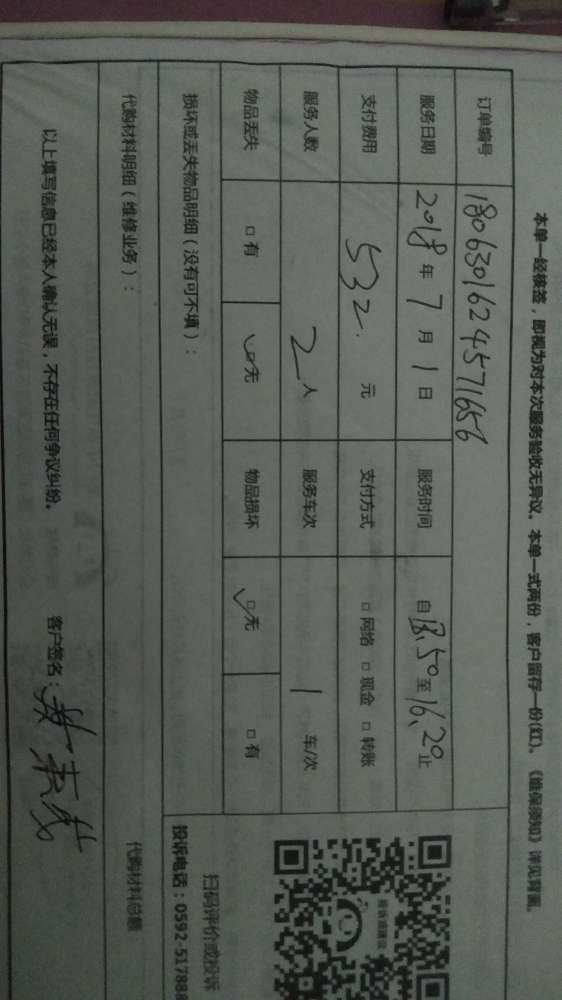 本单一经核签，即视为对本次服务验收无异议。本单一式两份，客户留存一份(红)。《维保须知》详见背面。
订单编号 1806301624571656
服务日期 2018年7月1日 服务时间 自13.50至16.20止
支付费用 532.元 支付方式 □网络 □现金 □转账
服务人数 2人 服务车次 1车/次
物品丢失 □有 ☑无 物品损坏 ☑无 □有
损坏或丢失物品明细（没有可不填）：
代购材料明细（维修业务）： 代购材料总额
以上填写信息已经本人确认无误，不存在任何争议纠纷。 客户签名：
投诉或建议
扫码评价或投诉
投诉电话：0592-517888